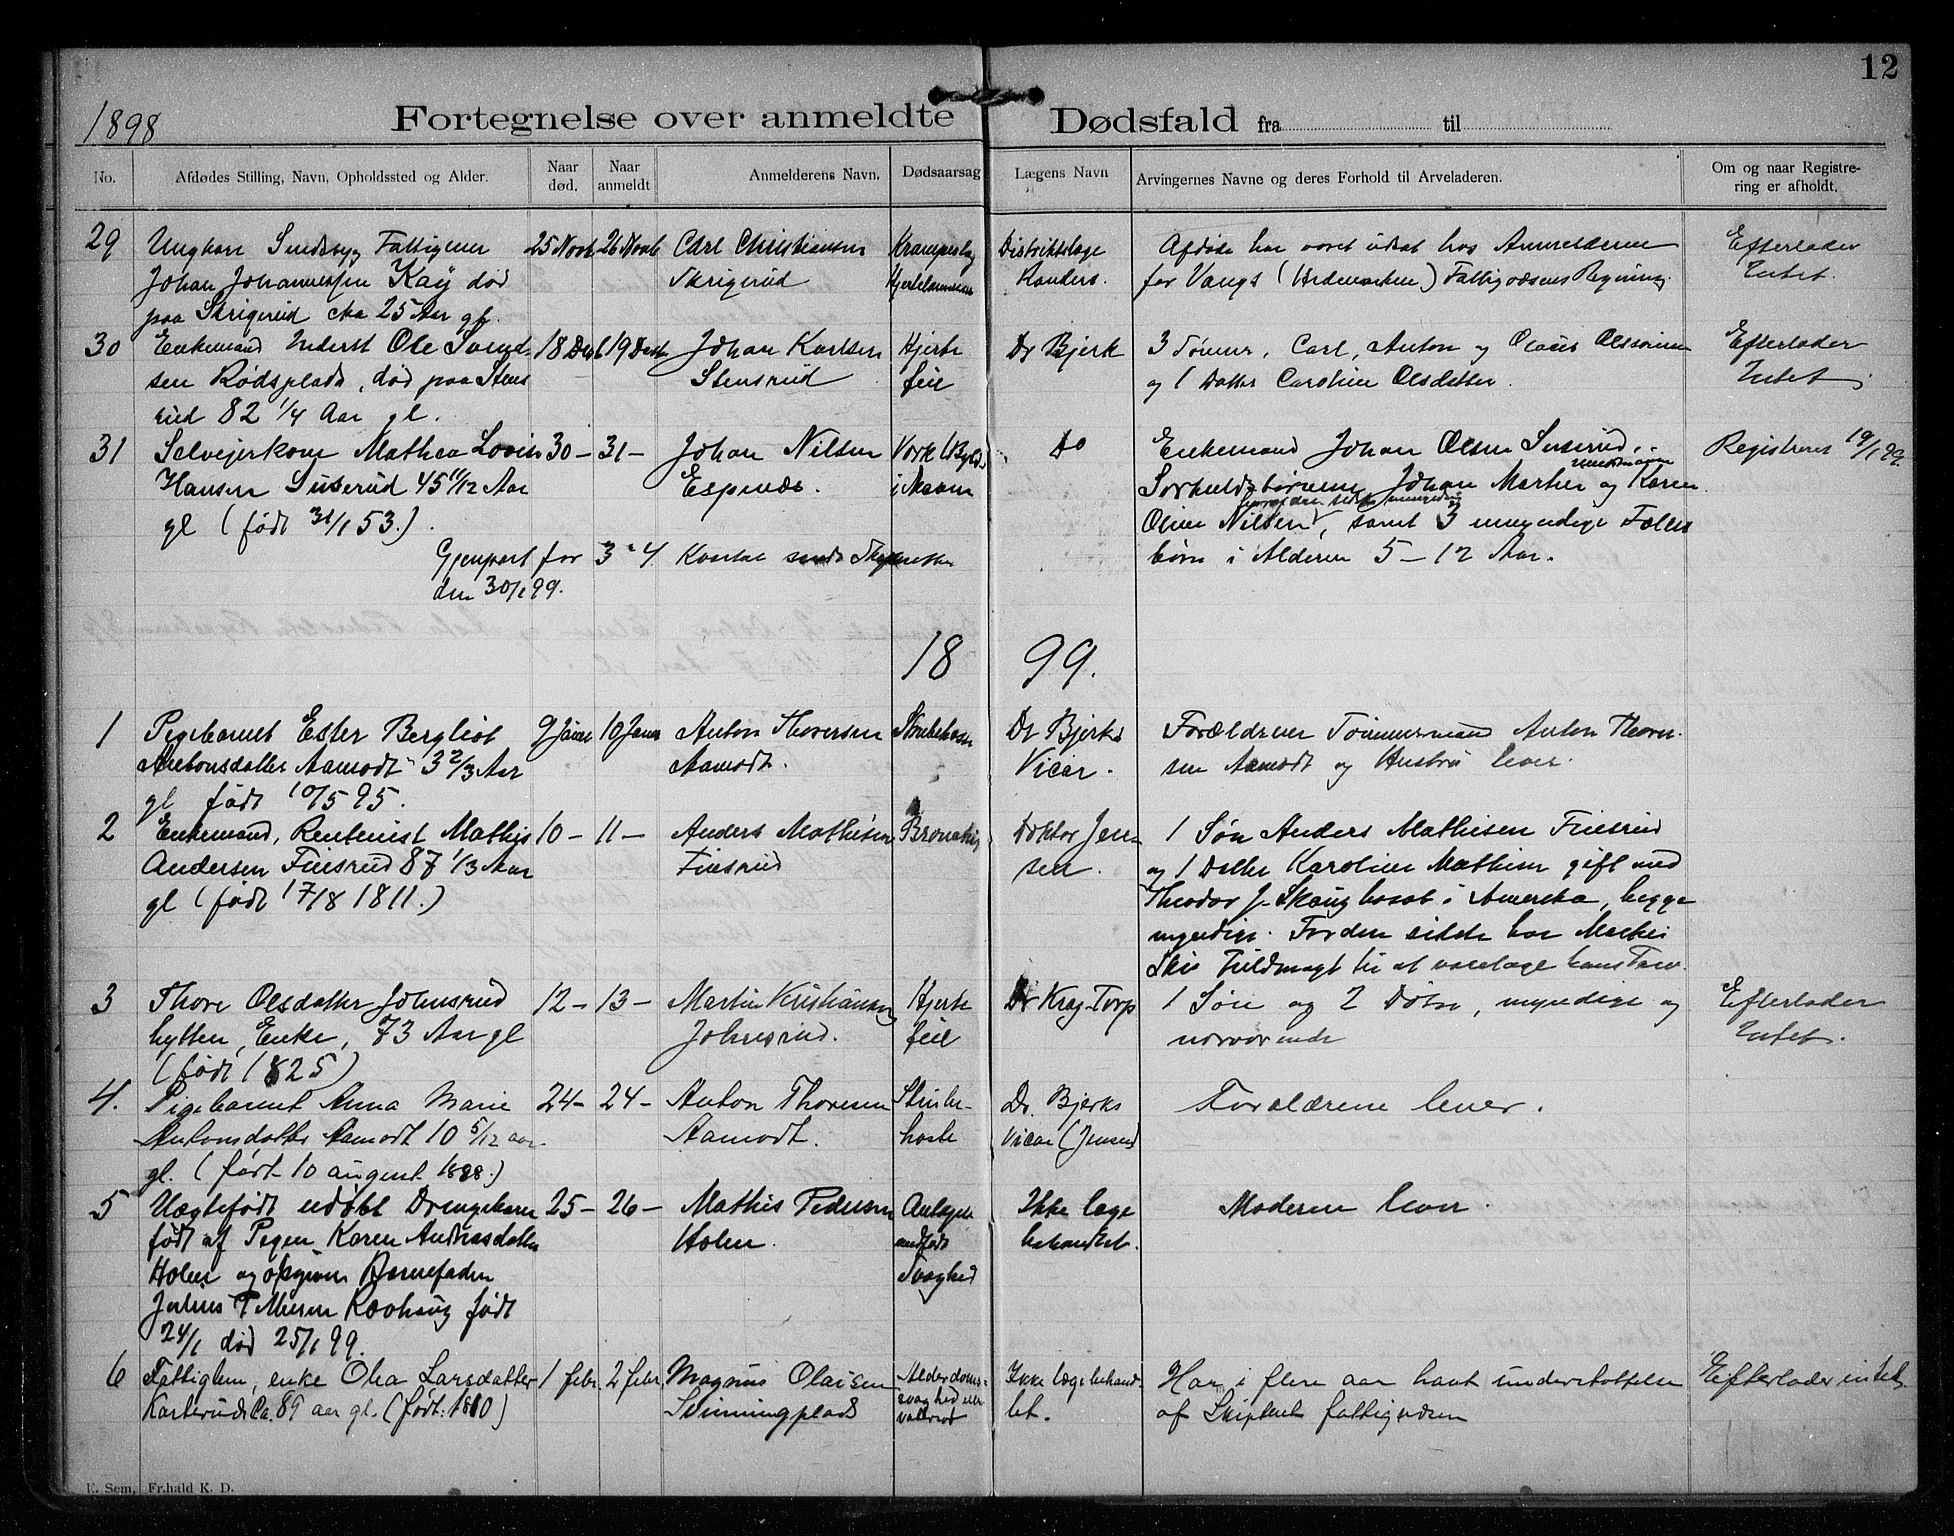 12
1898
Fortegnelse over anmeldte Dødsfald fra til
No.
Afdødes Stilling, Navn, Opholdssted og Alder.
Naar død.
Naar anmeldt
Anmelderens Navn.
Dødsaarsag
Lægens Navn
Arvingernes Navne og deres Forhold til Arveladeren.
Om og naar Registre-
ring er afholdt.
29 Ungkarl Sindssyg Fattiglem 25 Novb 26 Novb Carl Christiansen Krampeslag Distriktslæge Afdøde har været udsat hos Anmelderen Efterlader
Johan Johannessen Kaÿ død Skrigerud Hjertelammelse Randers. for Vangs (Hedemarken) Fattigvæsens Regning. Intet.
paa Skrigerud cka 25 Aar gl.
30 Enkemand Inderst Ole Svend- 18 Decb 19 Decb Johan Karlsen Hjerte Dr Bjerk 3 Sønner, Carl, Anton og Olaus Olssønner Efterlader
sen Rødsplads, død paa Stens Stensrud feil og 1 Datter Caroline Olsdatter. Intet.
rud 82 1/4 Aar gl.
31 Selveierkone Mathea Lovise 30 - 31 - Johan Nilsen Værk (Byld) Do Enkemand Johan Olsen Suserud, Registreret 19/1 99.
Hansen Suserud 45 11/12 Aar Espenæs. i Maven Særkuldsbørnene Johan Martin og Karen
gl (født 31/1 53.) Oline Nilsen, samt 3 umyndige Fælles
Gjenpart for 3 - 4 Kvartal sendt børn i Alderen 5 - 12 Aar.
den 30/1 99.
1899.
1 Pigebarnet Ester Bergliot 9 Januar 10 Janr Anton Thoresen Strubehoste Dr Bjerks Forældrene Tømmermand Anton Thore-
Antonsdatter Aamodt 3 2/3 Aar Aamodt. Vicar. sen Aamodt og Hustru lever.
gl født 10/5 95.
2 Enkemand, Rentenist Mathis 10 - 11 - Anders Mathisen Bronchitis Doktor Jen- 1 Søn Anders Mathisen Finsrud
Andersen Finsrud 87 1/3 Aar Finsrud sen. og 1 Datter Karoline Mathisen gift med
gl (født 17/8 1811.) Theodor J. Skaug bosat i Amerika, begge
myndige. For den sidste har Mathis
Skis Fuldmagt til at varetage hans Tarv.
3 Thore Olsdatter Johnsrud 12 - 13 - Martin Kristiansen Hjerte Dr Krag-Torp 1 Søn og 2 Døtre, myndige og Efterlader
hytten, Enke, 73 Aar gl Johnsrud. feil nærværende Intet.
(født 1825)
4. Pigebarnet Anna Marie 24 - 24 - Anton Thoresen Strube- Dr. Bjerks Forældrene lever.
Antonsdatter Aamodt 10 5/12 aar Aamodt. hoste Vicar (Jensen)
gl. (født 10 august 1888.)
5 Uægtefødt udøbt Drengebarn 25 - 26 - Mathis Pedersen Antagelig Ikke læge Moderen lever.
født af Pigen Karen Andreasdatter Holen. medfødt behandlet.
Holen og opgiven Barnefader Svaghed
Julius født
24/1 død 25/1 99.
6 Fattiglem, enke Olea Larsdatter 1 febr. 2 febr Magnus Olaisen Alderdoms- Ikke lægebehand- Har i flere aar havt understøttelse Efterlader intet.
Karterud Ca. 89 aar gl. (født: 1810) Slimmingplads svaghed eller let. af Skiptvet fattigvæsen
vattersot
E. Sem, Fr.hald K. D.